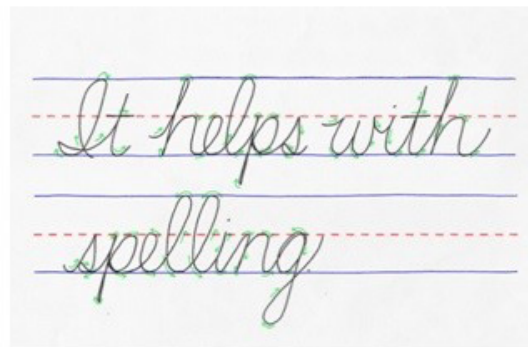 It helps with
spelling